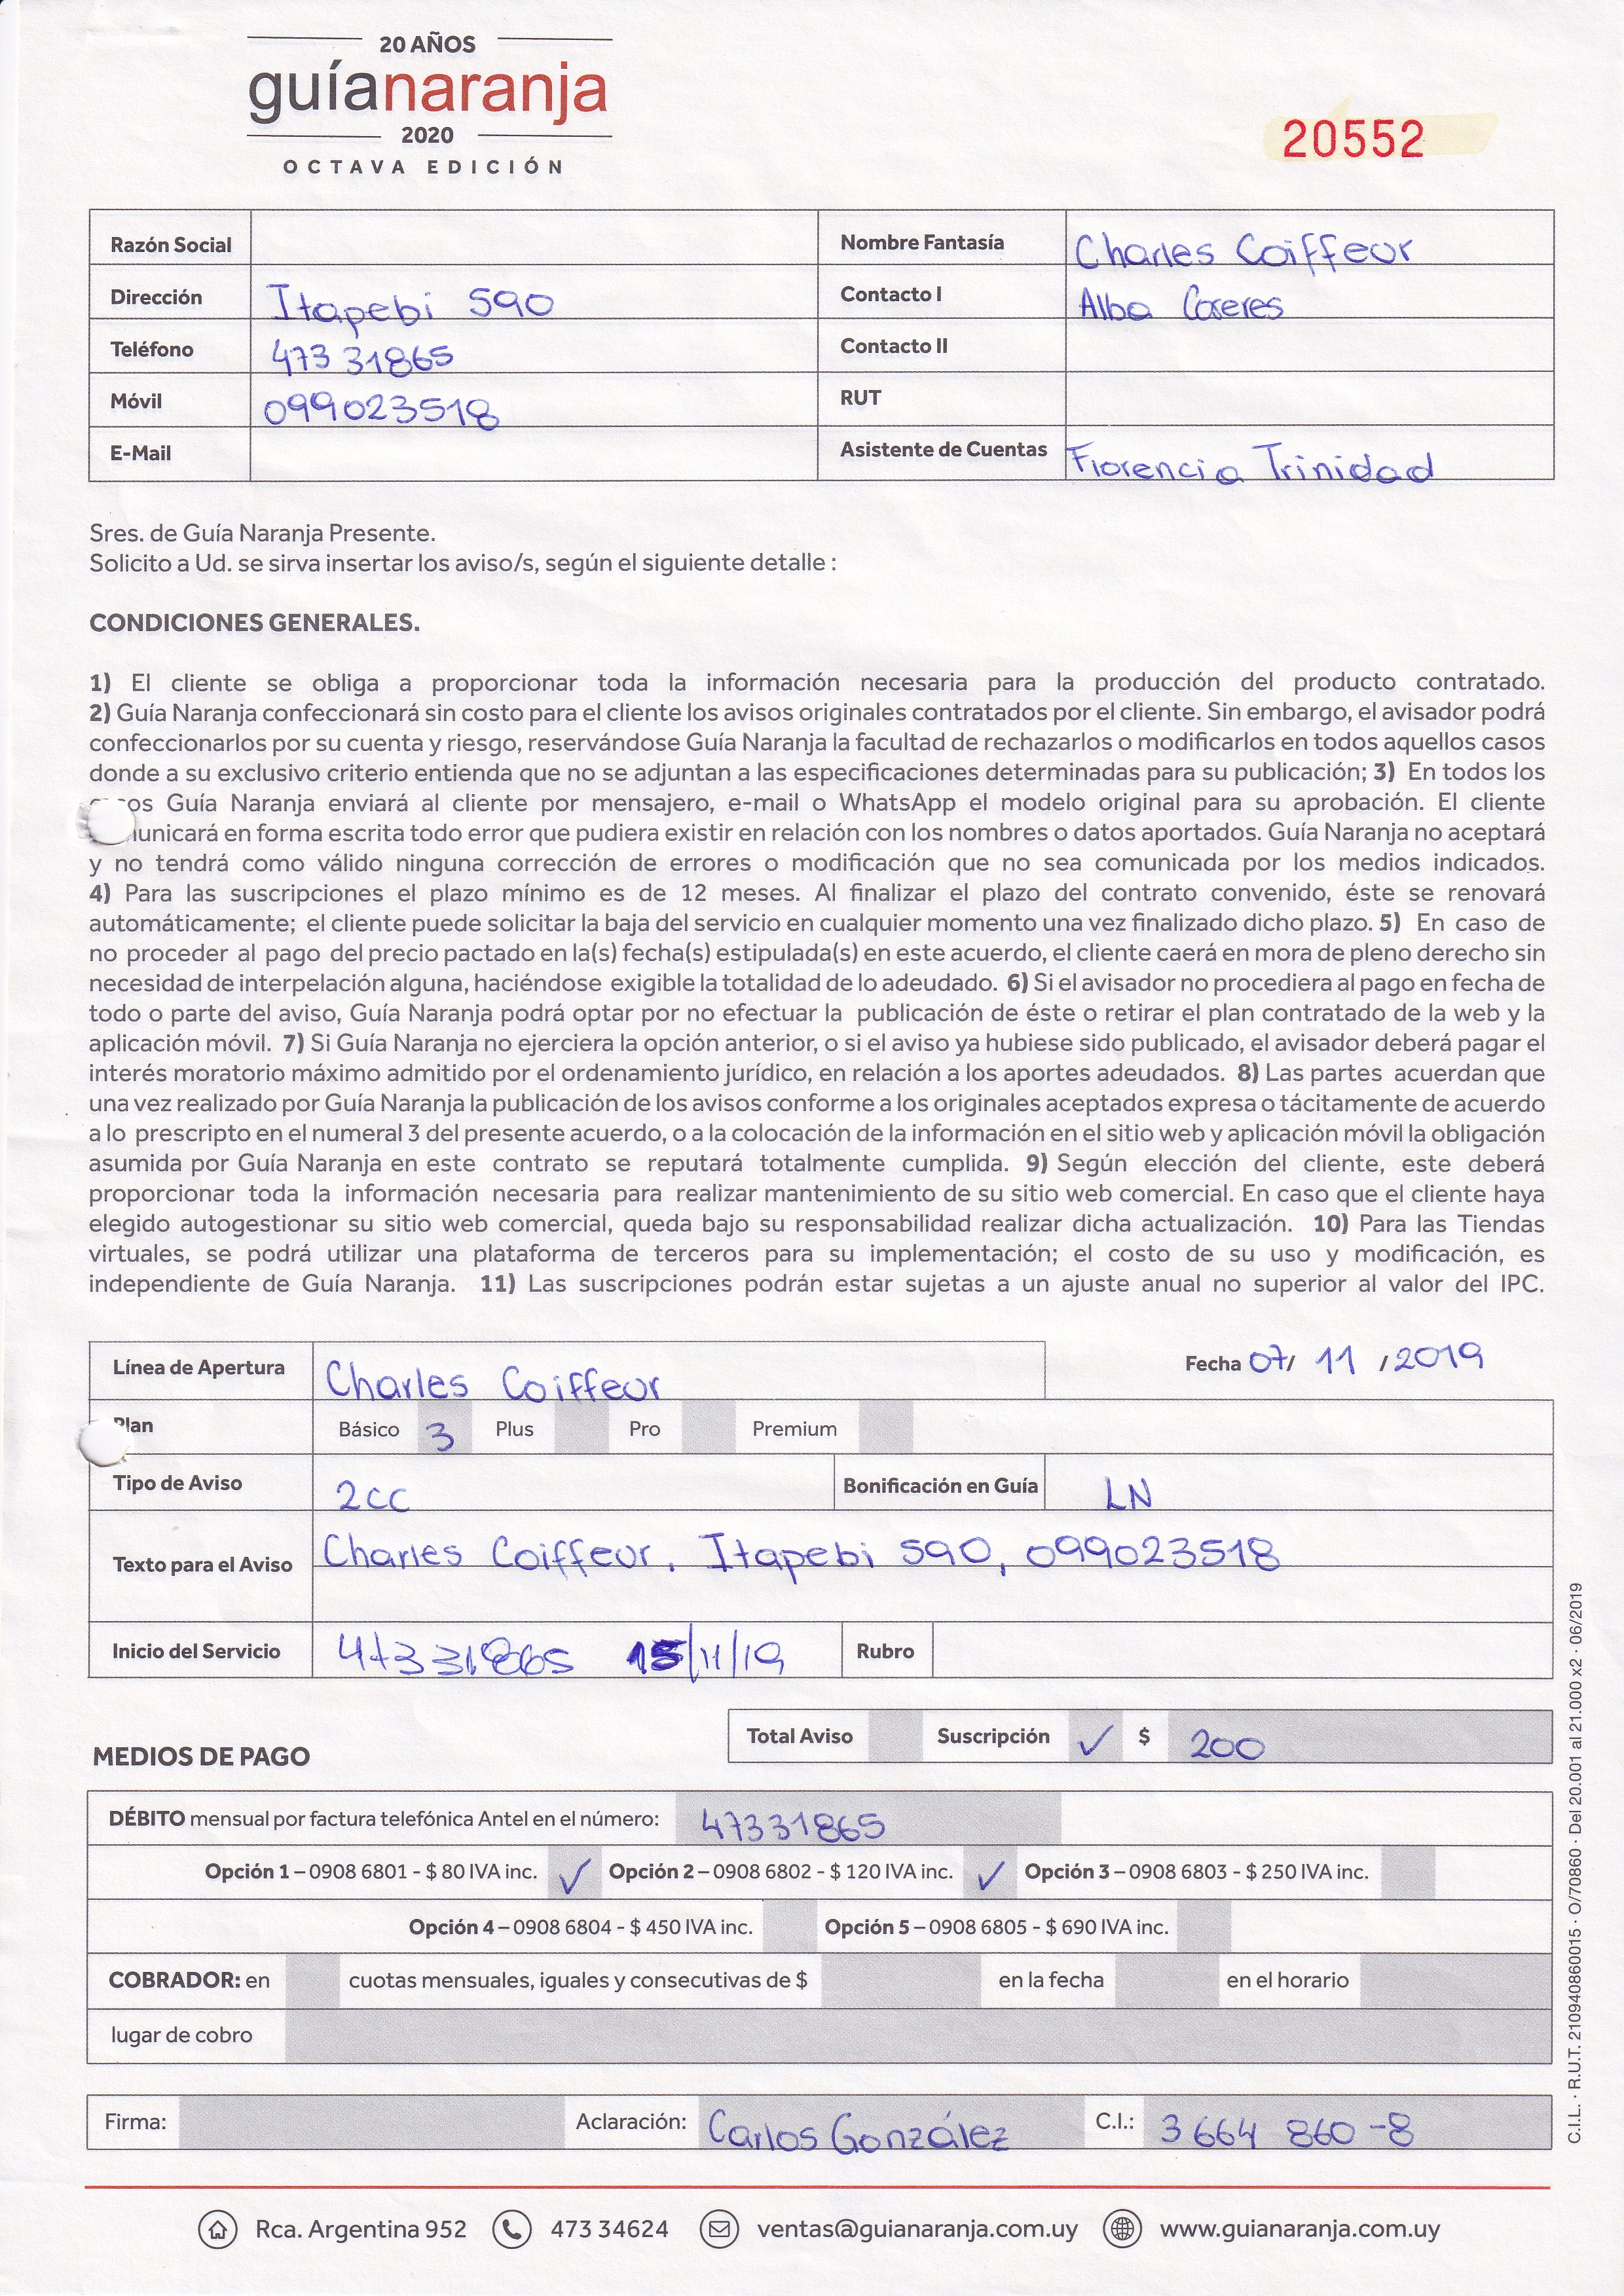 20 AÑOS
guíanaranja
2020
OCTAVA EDICIÓN
20552
Razón Social
Nombre Fantasía Charles Coiffeur
Dirección Itapebi 590
Contacto I Alba Caseres
Teléfono 473 31865
Contacto II
Móvil 099023518
RUT
E-Mail
Asistente de Cuentas Florencia Trinidad
Sres. de Guía Naranja Presente.
Solicito a Ud. se sirva insertar los aviso/s, según el siguiente detalle :
CONDICIONES GENERALES.
1) El cliente se obliga a proporcionar toda la información necesaria para la producción del producto contratado.
2) Guía Naranja confeccionará sin costo para el cliente los avisos originales contratados por el cliente. Sin embargo, el avisador podrá
confeccionarlos por su cuenta y riesgo, reservándose Guía Naranja la facultad de rechazarlos o modificarlos en todos aquellos casos
donde a su exclusivo criterio entienda que no se adjuntan a las especificaciones determinadas para su publicación; 3) En todos los
os Guía Naranja enviará al cliente por mensajero, e-mail o WhatsApp el modelo original para su aprobación. El cliente
unicará en forma escrita todo error que pudiera existir en relación con los nombres o datos aportados. Guía Naranja no aceptará
y no tendrá como válido ninguna corrección de errores o modificación que no sea comunicada por los medios indicados.
4) Para las suscripciones el plazo mínimo es de 12 meses. Al finalizar el plazo del contrato convenido, éste se renovará
automáticamente; el cliente puede solicitar la baja del servicio en cualquier momento una vez finalizado dicho plazo. 5) En caso de
no proceder al pago del precio pactado en la(s) fecha(s) estipulada(s) en este acuerdo, el cliente caerá en mora de pleno derecho sin
necesidad de interpelación alguna, haciéndose exigible la totalidad de lo adeudado. 6) Si el avisador no procediera al pago en fecha de
todo o parte del aviso, Guía Naranja podrá optar por no efectuar la publicación de éste o retirar el plan contratado de la web y la
aplicación móvil. 7) Si Guía Naranja no ejerciera la opción anterior, o si el aviso ya hubiese sido publicado, el avisador deberá pagar el
interés moratorio máximo admitido por el ordenamiento jurídico, en relación a los aportes adeudados. 8) Las partes acuerdan que
una vez realizado por Guía Naranja la publicación de los avisos conforme a los originales aceptados expresa o tácitamente de acuerdo
a lo prescripto en el numeral 3 del presente acuerdo, o a la colocación de la información en el sitio web y aplicación móvil la obligación
asumida por Guía Naranja en este contrato se reputará totalmente cumplida. 9) Según elección del cliente, este deberá
proporcionar toda la información necesaria para realizar mantenimiento de su sitio web comercial. En caso que el cliente haya
elegido autogestionar su sitio web comercial, queda bajo su responsabilidad realizar dicha actualización. 10) Para las Tiendas
virtuales, se podrá utilizar una plataforma de terceros para su implementación; el costo de su uso y modificación, es
independiente de Guía Naranja. 11) Las suscripciones podrán estar sujetas a un ajuste anual no superior al valor del IPC.
Línea de Apertura Charles Coiffeur
Fecha 07/ 11 /2019
Plan Básico 3 Plus Pro Premium
Tipo de Aviso 2cc Bonificación en Guía LN
Texto para el Aviso Charles Coiffeur. Itapebi 590, 099023518
Inicio del Servicio 47331865 15/11/19 Rubro
Total Aviso Suscripción ✓ $ 200
MEDIOS DE PAGO
DÉBITO mensual por factura telefónica Antel en el número: 47331865
Opción 1 – 0908 6801 - $ 80 IVA inc. ✓ Opción 2 – 0908 6802 - $ 120 IVA inc. ✓ Opción 3 – 0908 6803 - $ 250 IVA inc.
Opción 4 – 0908 6804 - $ 450 IVA inc. Opción 5 – 0908 6805 - $ 690 IVA inc.
COBRADOR: en cuotas mensuales, iguales y consecutivas de $ en la fecha en el horario
lugar de cobro
Firma: Aclaración: Carlos González C.I.: 3 664 860-8
C.I.L. · R.U.T. 210940860015 · O/70860 · Del 20.001 al 21.000 x2 · 06/2019
Rca. Argentina 952 473 34624 ventas@guianaranja.com.uy www.guianaranja.com.uy